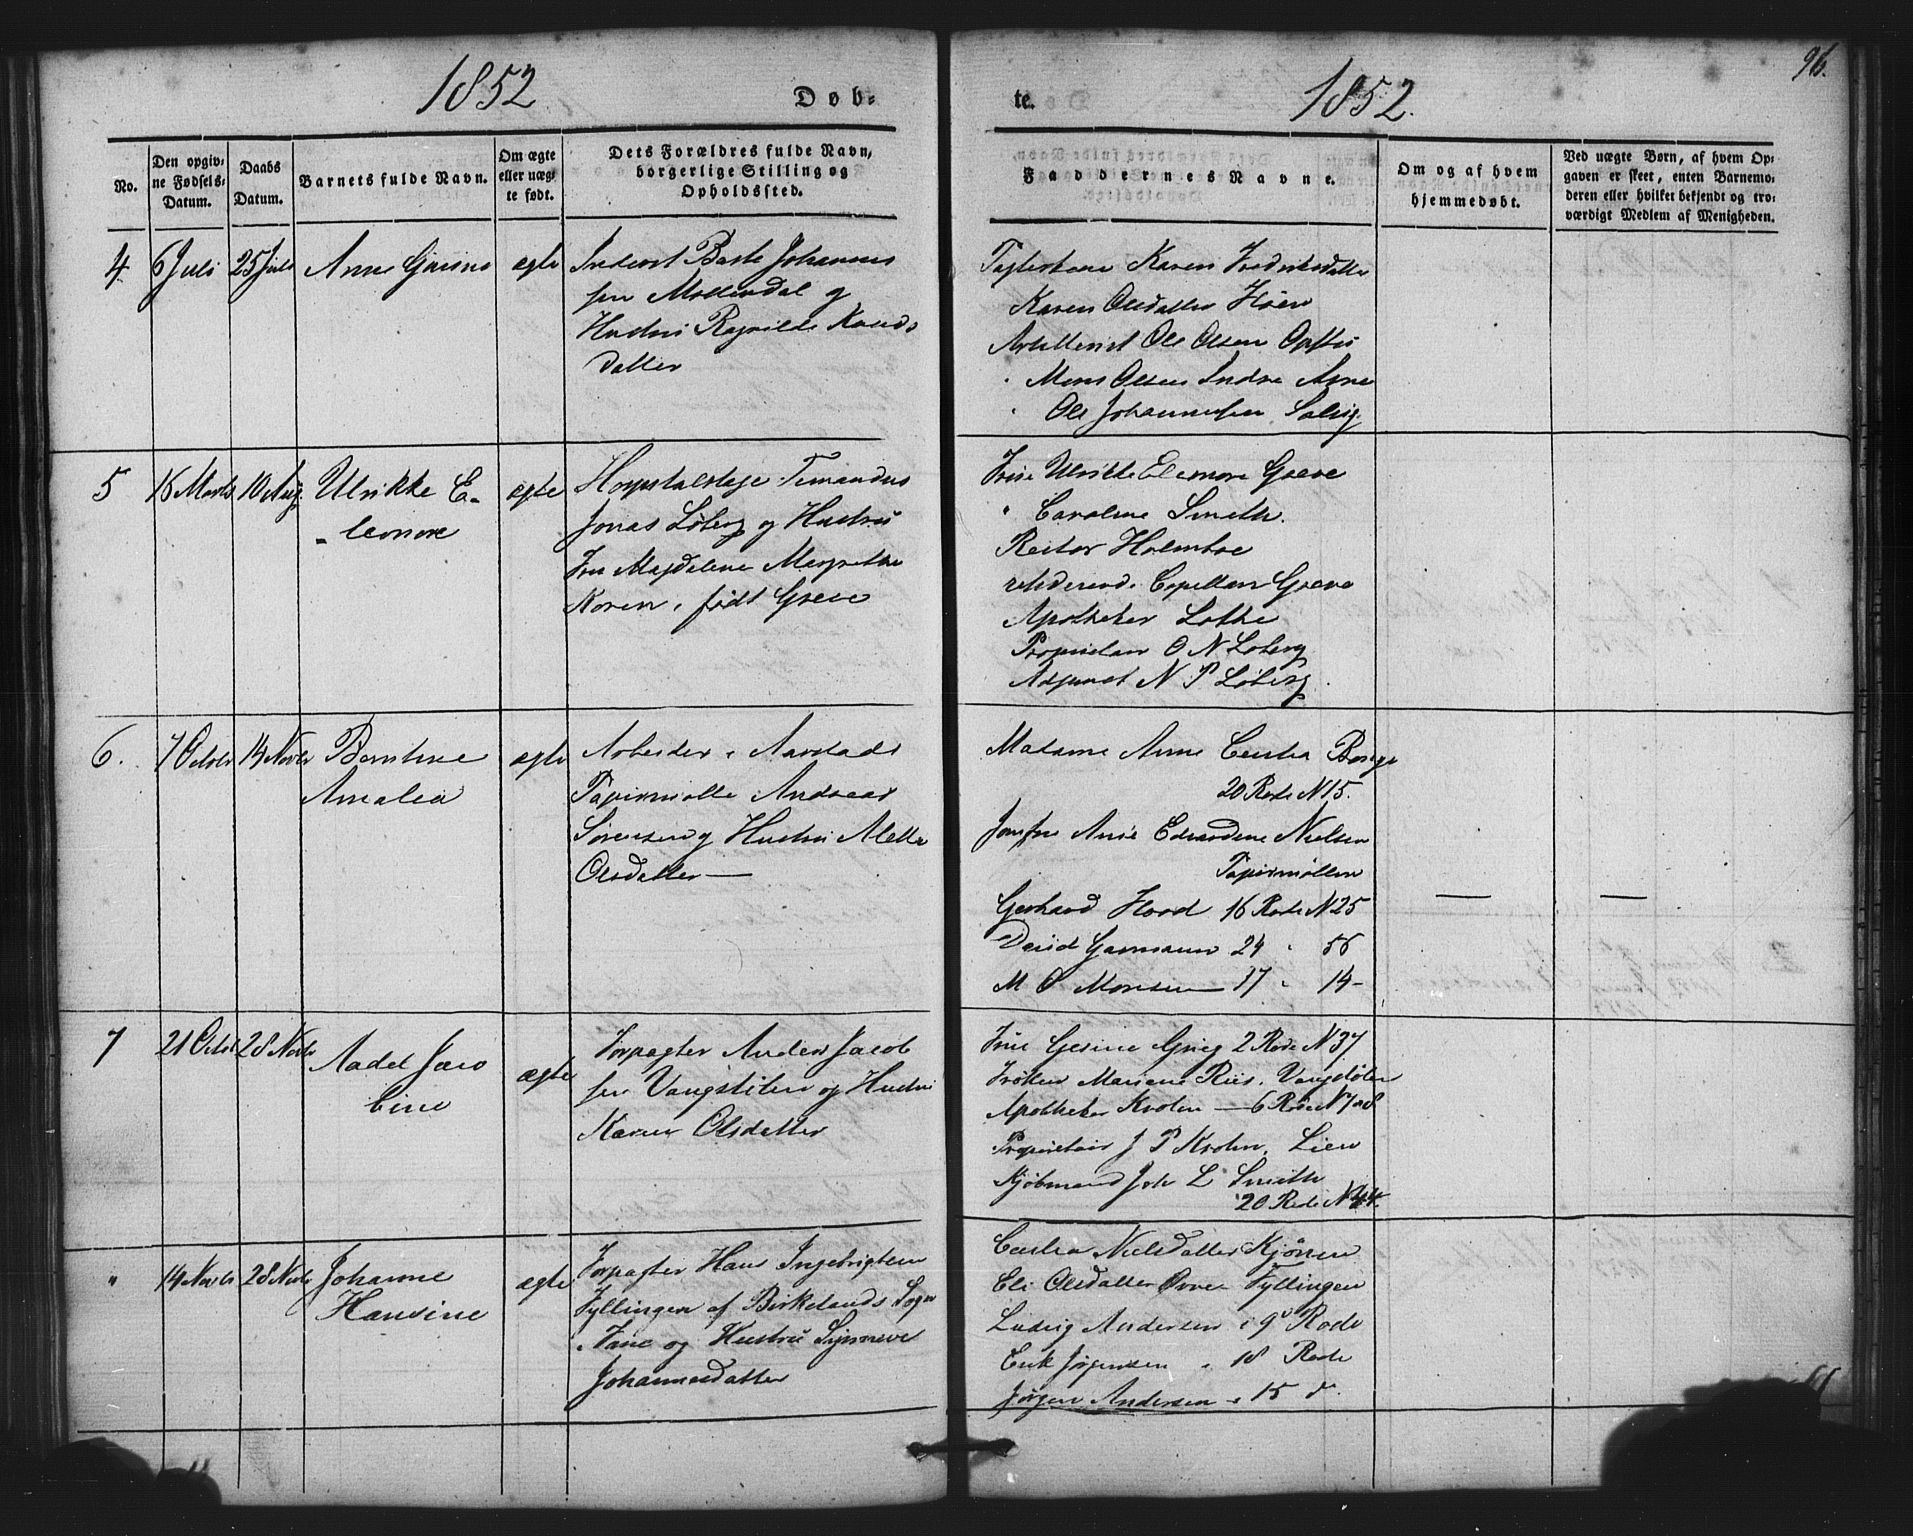 1852
Døb-
No.
Den opgiv-
ne Fødsels-
Datum.
Daabs
Datum.
Barnets fulde Navn.
Om ægte
eller uæg-
te født.
Dets Forældres fulde Navn,
borgerlige Stilling og
Opholdssted.
4
6 Juli
25 Juli
Anne Gurine
ægte
Inderst Johannes
sen Møllendal og
Hustru Ragnilde Knuds
datter
5
16 Marts
10 Aug
Ulrikke E-
-leonore
ægte
Hospitalslæge Timandus
Jonas Løberg og Hustru
Fru Magdalene Margrethe
Koren, født Greve
6.
7 Octobr
14 Novbr
Berntine
Amalia
ægte
Arbeider i Aarstads
Papirmølle Andreas
Sørensen og Hustru Mette
Olsdatter —
7
21 Octobr
28 Novbr
Aadel Jaco
bine
ægte
Forpagter Anders Jacob
sen Vangstilen og Hustru
Karen Olsdatter
"
14 Novbr
28 Novbr
Johanne
Hansine
ægte
Forpagter Hans Ingebrigtsen
Fyllingen af Birkelands Sogn
Fane og Hustru Synneve
Johannesdatter
96.
te.
1852.
Faddernes Navne.
Om og af hvem
hjemmedøbt.
Ved uægte Børn, af hvem Op-
gaven er skeet, enten Barnemo-
deren eller hvilket bekjendt og tro-
værdigt Medlem af Menigheden.
Karen Fredriksdatter
Karen Olsdatter Høen
Artillerist Ole Olsen
" Mons Olsen Indre Arne
" Ole Johannessen
Frue Ulrikke Eleonore Greve
" Caroline Smith.
Rector Holmboe
resider. Capellan Greve
Apotheker Lothe
Proprietær O N Løberg
Adjunct N P Løberg.
Madame Anne Cecilia
20 Rode N 15.
Jomfru Anne Edvardine Nielsen
Papirmøllen
Gerhard 16 Rode N 25
David Gammann 24 " 56
M O Monsen — 17 " 14 -
Frue Gesine Grieg 2 Rode N 37
Frøken Mariane Riis,
Apotheker Krohn — 6 Rode N 7 og 8
Proprietair J P Krohn, Lien
Kjøbmand Joh L Smith
20 Rode N 44.
Cecilia Nielsdatter
Eli Olsdatter Øvre Fyllingen
Ludvig Andersen i 9 Rode
Erik Jørgensen " 18 Rode
Jørgen Andersen " 15 do.